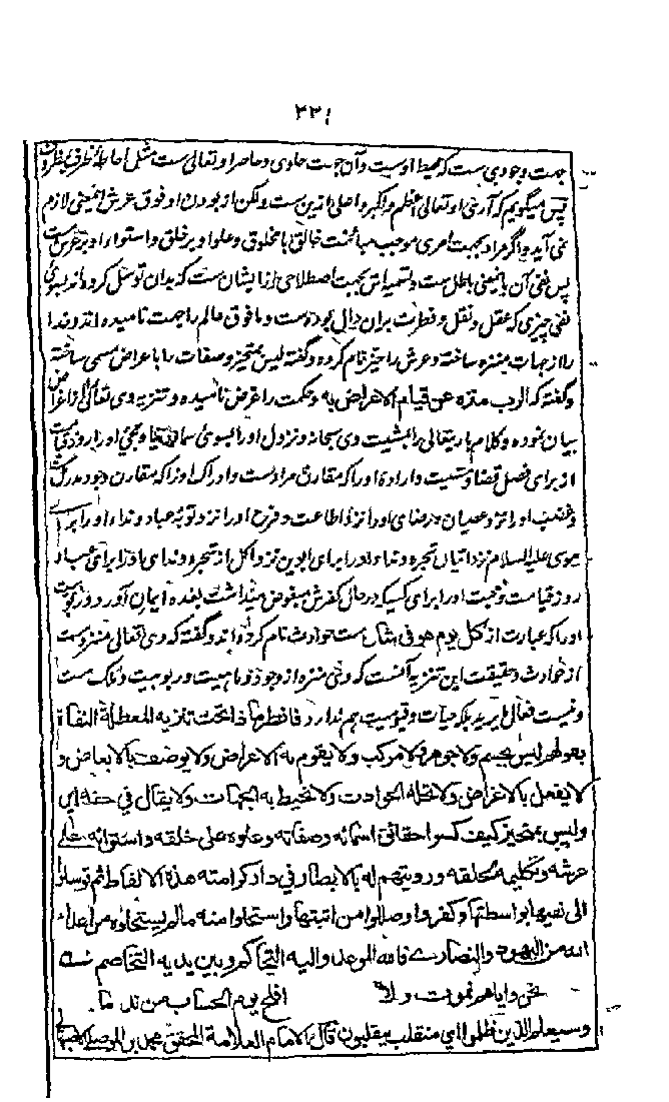 ۲۲۱
جهت وجودی ست که محیط اوست وآن جهت حاوی وحاصر او تعالی ست مثل احاطهٔ ظرف بمظروف
پس میگویم که آری او تعالی اعظم واکبر واعلی ازین ست ولکن از بودن او فوق عرش این معنی لازم
نمی آید واگر مراد بجهت امری موجب مباینت خالق با مخلوق وعلو او بر خلق واستواء او بر عرش ست
پس نفی آن باین معنی باطل ست وتسمیه اش بجهت اصطلاحی از ایشان ست که بدان توسل کرده اند بسوی
نفی چیزی که عقل ونقل وفطرت بران دال بوده ست وما فوق عالم را جهت نامیده اند وخدا
را از جهات منزه ساخته وعرش را حیز نام کرده وگفته لیس بمتحیز وصفات را باعراض مسمی ساخته
وگفته که الرب منزه عن قیام الاعراض به وحکمت را غرض نامیده وتنزیه وی تعالی از اغراض
بیان نموده وکلام باریتعالی را بمشیت وی سبحانه ونزول او را بسوی سمای دنیا ومجی او را روز قیامت
از برای فصل قضا ومشیت وارادهٔ او را که مقارن مراد ست وادراک او را که مقارن وجود مدرک ست
وغضب او را نزد عصیان ورضای او را نزد اطاعت وفرح او را نزد توبهٔ عباد ونداء او را برای
موسی علیه السلام نزد اتیان شجره ونداء او را برای ابوین نزد اکل از شجره وندای او را برای عباد
روز قیامت ومحبت او را برای کسیکه در حال کفرش مبغوض میداشت بعده ایمان آورد وربوبیت
او را که عبارت از کل یوم هو فی شان ست حوادث نام کرده اند وگفته که وی تعالی منزه ست
از حوادث وحقیقت این تنزیه آنست که وی منزه از وجود وماهیت وربوبیت وملک ست
ونیست فعال لما یرید بلکه حیات وقیومیت هم ندارد فانظر ماذا تحت تنزیه المعطلة النفاة
بقولهم لیس بجسم ولا جوهر ولا مرکب ولا یقوم به الاعراض ولا یوصف بالابعاض و
لا یفعل بالاغراض ولا تحله الحوادث ولا تحیط به الجهات ولا یقال فی حقه این
ولیس بمتحیز کیف کسوا حقائق اسمائه وصفاته وعلوه علی خلقه واستوائه علی
عرشه وتکلیمه لخلقه ورویتهم له بالابصار فی دار کرامته هذه الالفاظ ثم توسلوا
الی نفیها بواسطتها وکفروا وضللوا من اثبتها واستحلوا منه مالم یستحلوه من اعداء
الله من الیهود والنصاری فالله الموعد والیه التحاکم وبین یدیه التخاصم شعر
نحن وایاهم نموت ولا افلح یوم الحساب من ندما
وسیعلم الذین ظلموا ای منقلب ینقلبون قال الامام العلامة المحقق محمد بن الموصلی